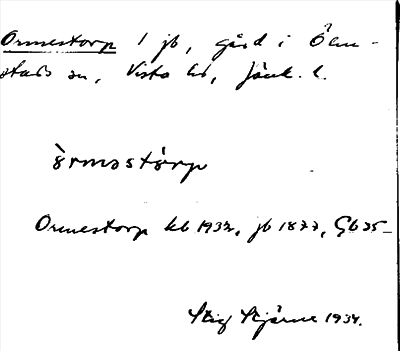 Ormestorp 1 jb, gård i Ölm-
stads sn, Vista hd, Jönk. l.
òrmastórp
Ormestorp kb 1932, jb 1877, Gb 35-
Stig Stjärne 1934.